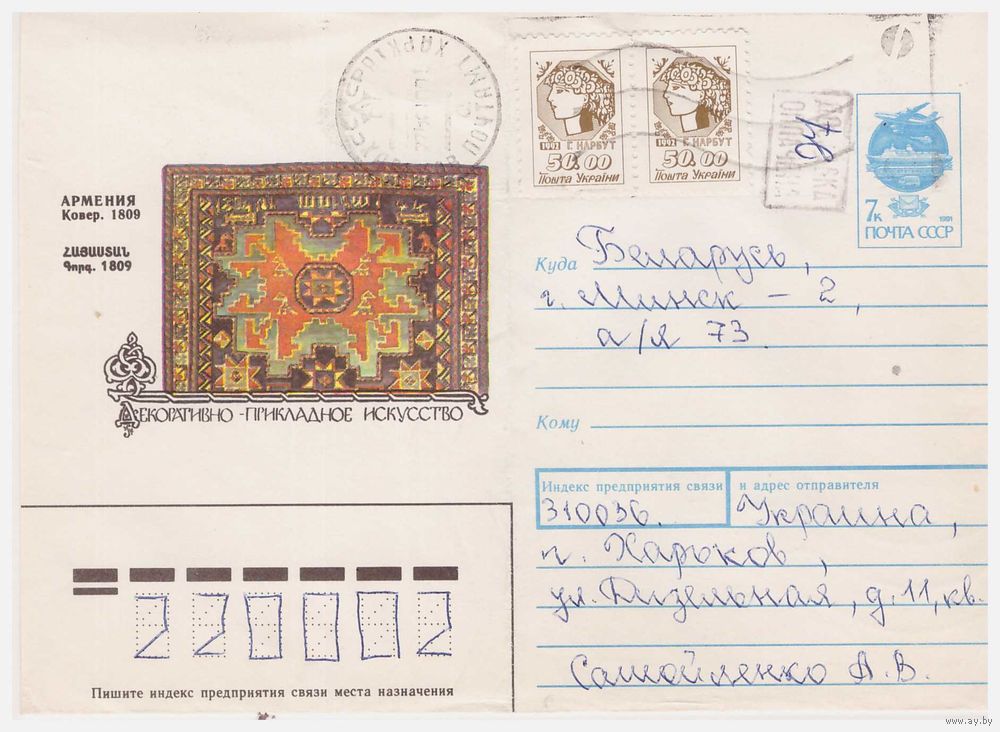 АРМЕНИЯ
Ковер. 1809
ՀԱՅԱՍՏԱՆ
Գորգ. 1809
ДЕКОРАТИВНО-ПРИКЛАДНОЕ ИСКУССТВО
1992 Г. НАРБУТ
50.00
ПОШТА УКРАЇНИ
1992 Г. НАРБУТ
50.00
ПОШТА УКРАЇНИ
7к 1991
ПОЧТА СССР
Куда Беларусь,
г. Минск - 2,
а/я 73
Кому
Индекс предприятия связи и адрес отправителя
310036. Украина,
г. Харьков,
ул. Дизельная, д. 11, кв.
Самойленко А. В.
220002
Пишите индекс предприятия связи места назначения
www.ay.by